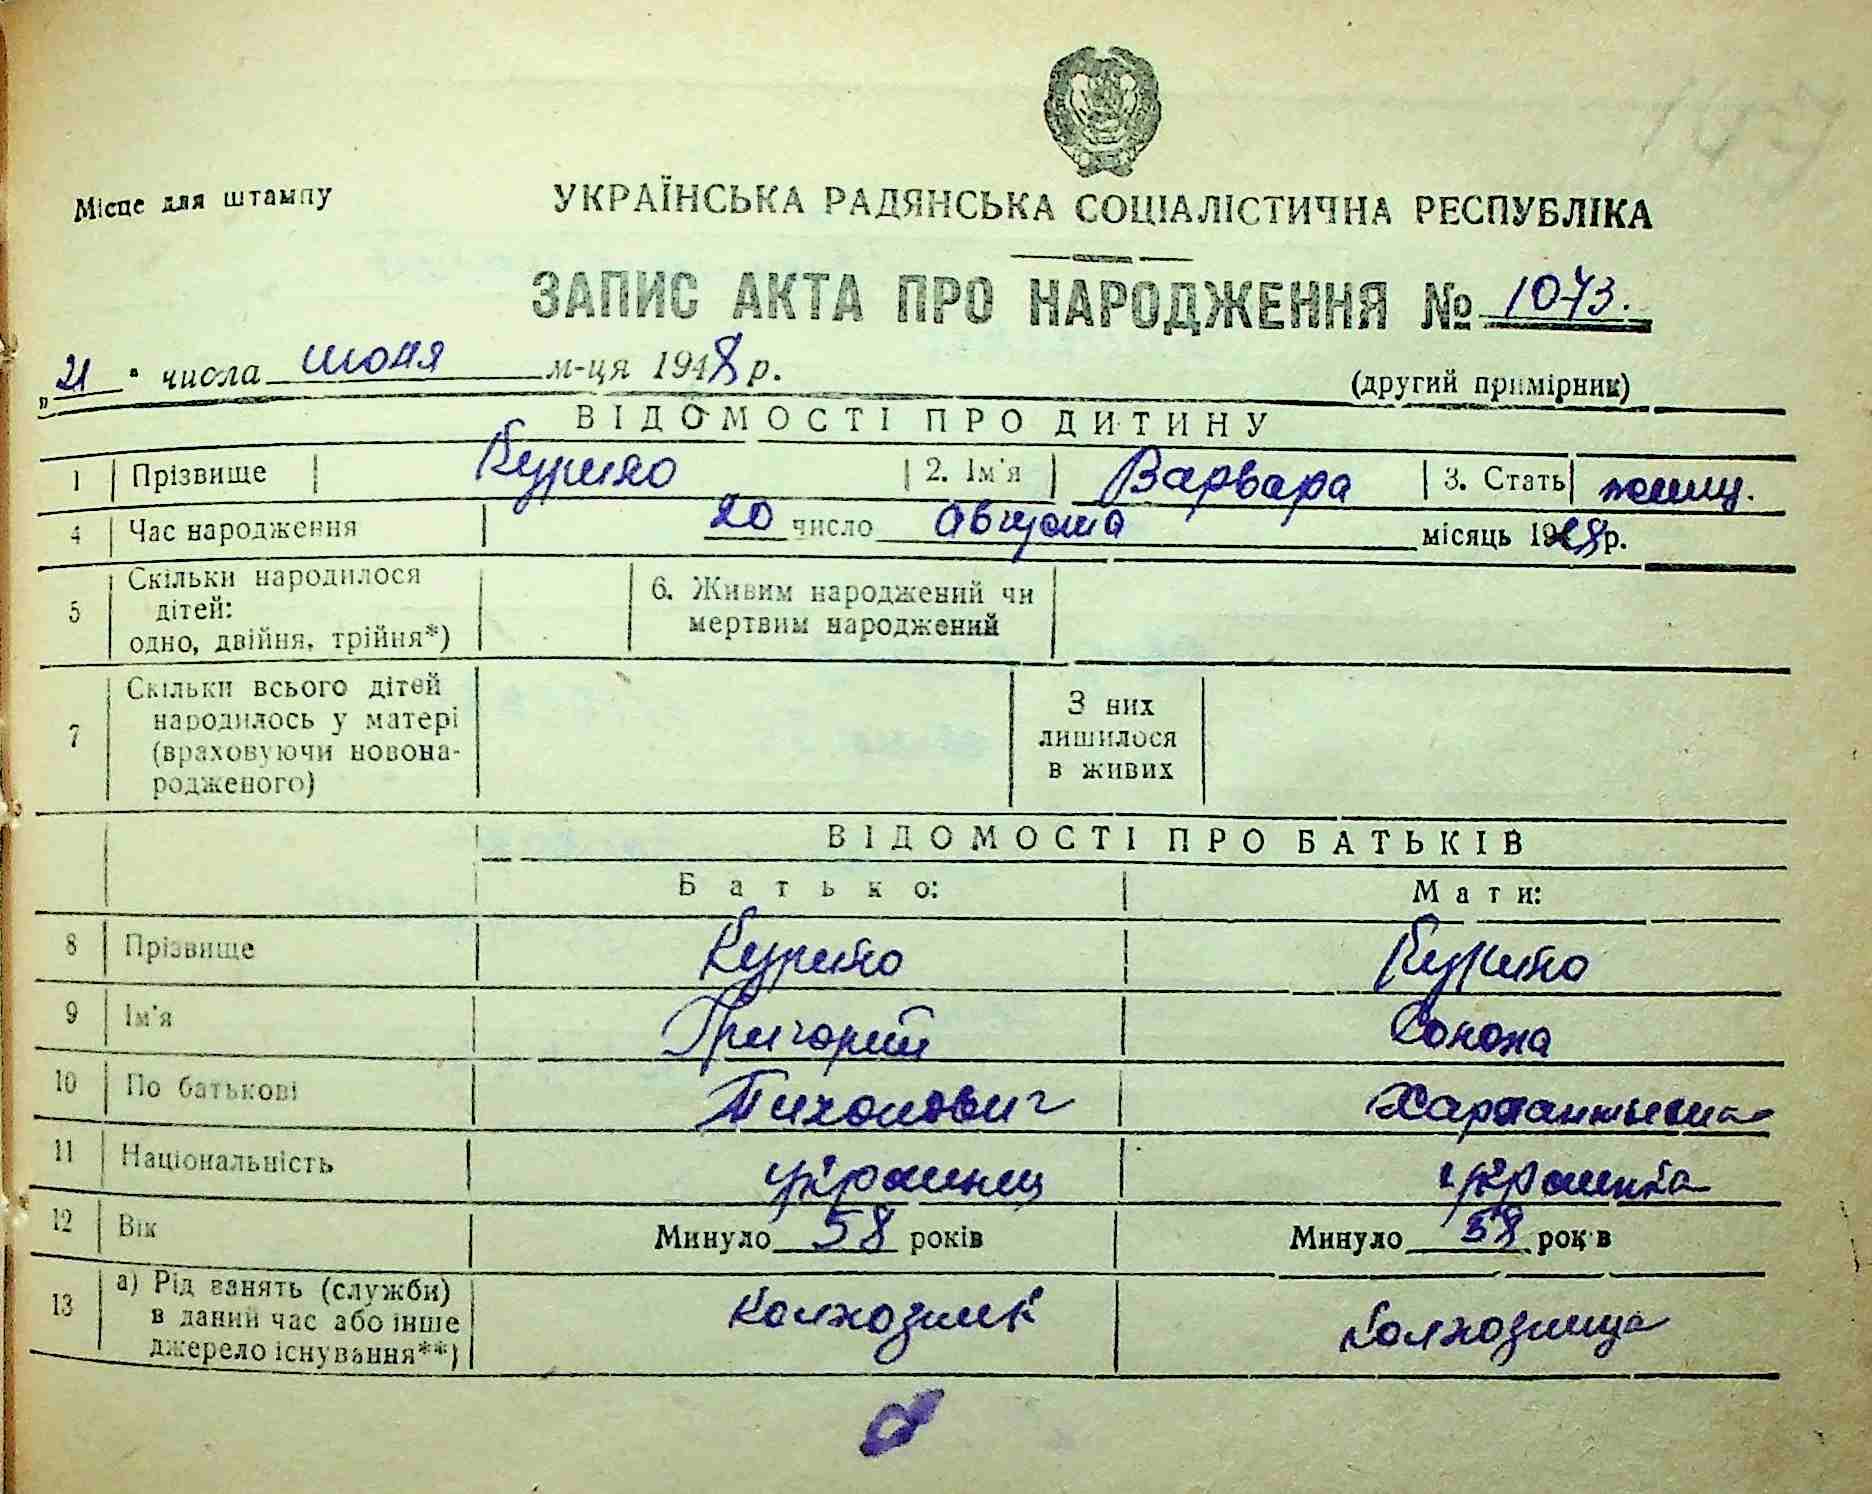 Місце для штампу
УКРАЇНСЬКА РАДЯНСЬКА СОЦІАЛІСТИЧНА РЕСПУБЛІКА
ЗАПИС АКТА ПРО НАРОДЖЕННЯ № 1073.
„21" числа июня м-ця 1948 р.
(другий примірник)
ВІДОМОСТІ ПРО ДИТИНУ
1 Прізвище Курило 2. Ім'я Варвара 3. Стать женщ.
4 Час народження 20 число Августа місяць 1918 р.
5 Скільки народилося дітей: одно, двійня, трійня*) 6. Живим народжений чи мертвим народжений
7 Скільки всього дітей народилось у матері (враховуючи новонародженого) З них лишилося в живих
ВІДОМОСТІ ПРО БАТЬКІВ
Батько: Мати:
8 Прізвище Курило Курило
9 Ім'я Григорий
10 По батькові Тихонович
11 Національність украинец украинка
12 Вік Минуло 58 років Минуло 58 років
13 а) Рід занять (служби) в даний час або інше джерело існування**) Колхозник Колхозница